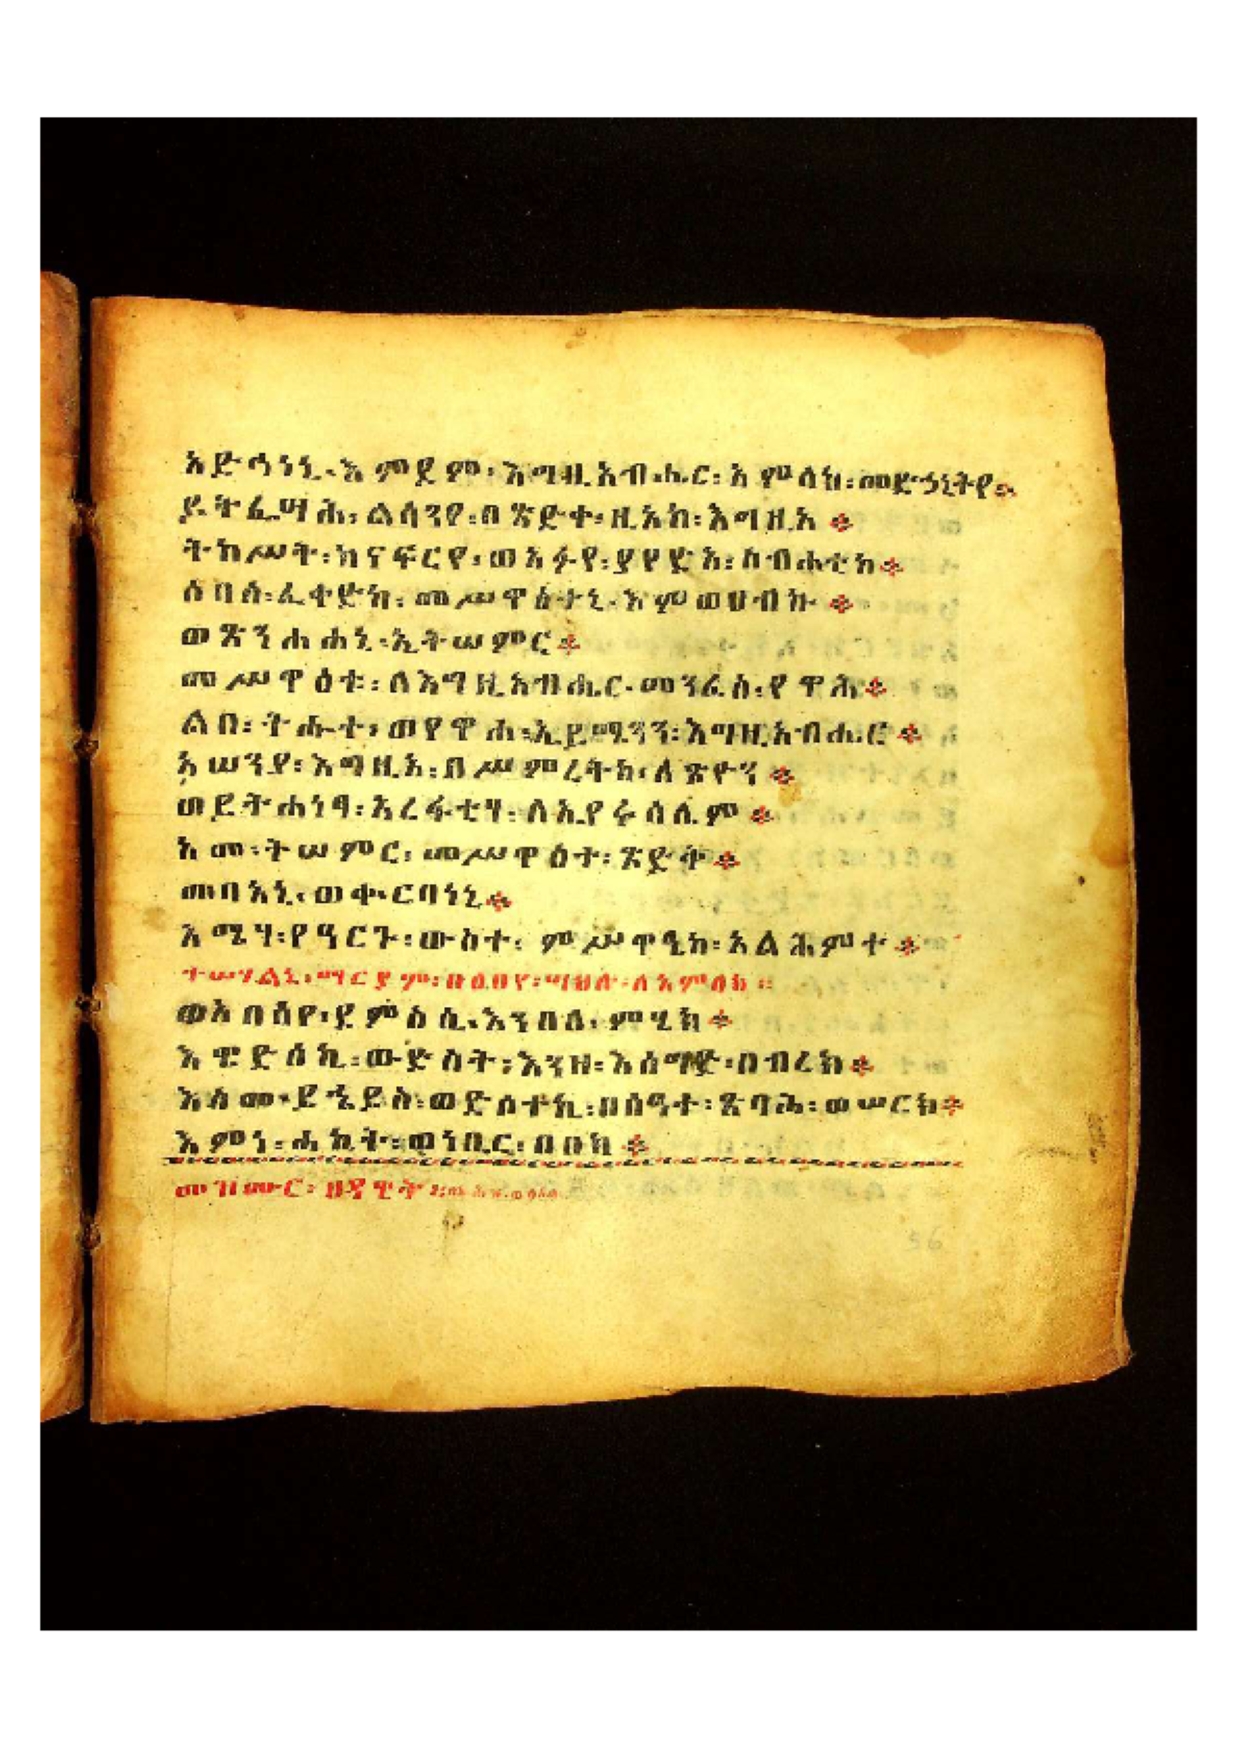 አድኅነኒ፡እምደም፡እግዚአብሔር፡አምላከ፡መድኃኒትየ።
ይትፌሣሕ፡ልሳንየ፡በጽድቀ፡ዚአከ፡እግዚአ
ትከሥት፡ከናፍርየ፡ወአፉየ፡ያየድእ፡ስብሐቲከ
ሶበሰ፡ፈቀድከ፡መሥዋዕተኒ፡እምወሀብኩ
ወጽንሐሐኒ፡ኢትሠምር
መሥዋዕቱ፡ለእግዚአብሔር፡መንፈስ፡የዋሕ
ልበ፡ትሑተ፡ወየዋሐ፡ኢይሜንን፡እግዚአብሔር
አሠንያ፡እግዚአ፡በሥምረትከ፡ለጽዮን
ወይትሐነፃ፡አረፋቲሃ፡ለኢየሩሳሌም
አመ፡ትሠምር፡መሥዋዕተ፡ጽድቅ
መባአኒ፡ወቍርባነኒ
አሜሃ፡የዓርጉ፡ውስተ፡ምሥዋዒከ፡አልሕምተ
ተሣሃልኒ፡ማርያም፡በዕበየ፡ሣህሉ፡ለአምላክ
ወአበሳየ፡ደምስሲ፡እንበለ፡ምሂክ
እዌድሰኪ፡ውድስት፡እንዘ፡እሰግድ፡በብረክ
እስመ፡ይኄይስ፡ወድሶትኪ፡በሰዓተ፡ጽባሕ፡ወሠርክ
እምነ፡ሐኪት፡ወነቢር፡በበክ
መዝሙር፡ዘዳዊት
56